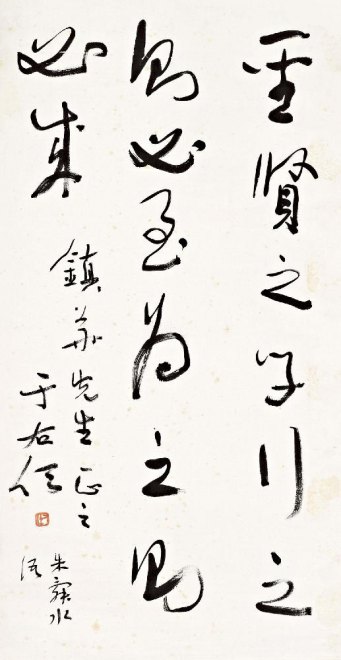 聖賢之學行之
則必至為之則
必成
鎮華先生正之
于右任
朱舜水
語